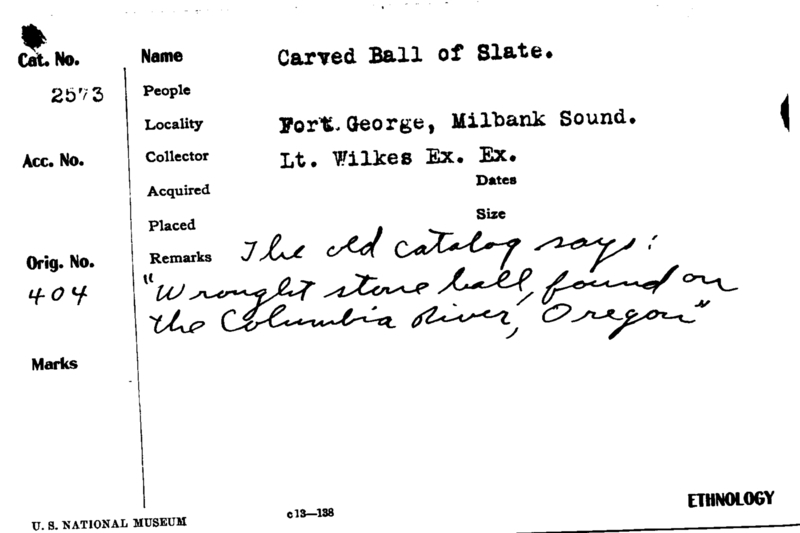 Cat. No. Name Carved Ball of Slate.
2573 People
Locality Fort George, Milbank Sound.
Acc. No. Collector Lt. Wilkes Ex. Ex.
Acquired Dates
Placed Size
Orig. No. Remarks The old catalog says:
404 "Wrought stone ball, found on
the Columbia River, Oregon"
Marks
ETHNOLOGY
U. S. NATIONAL MUSEUM c13—138